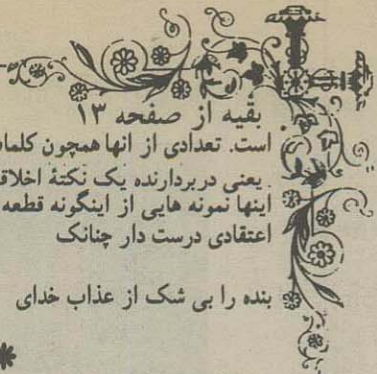 بقیه از صفحه ۱۳
است. تعدادی از انها همچون کلمات
. یعنی دربردارنده یک نکتهٔ اخلاقی
اینها نمونه هایی از اینگونه قطعه
اعتقادی درست دار چنانک
بنده را بی شک از عذاب خدای